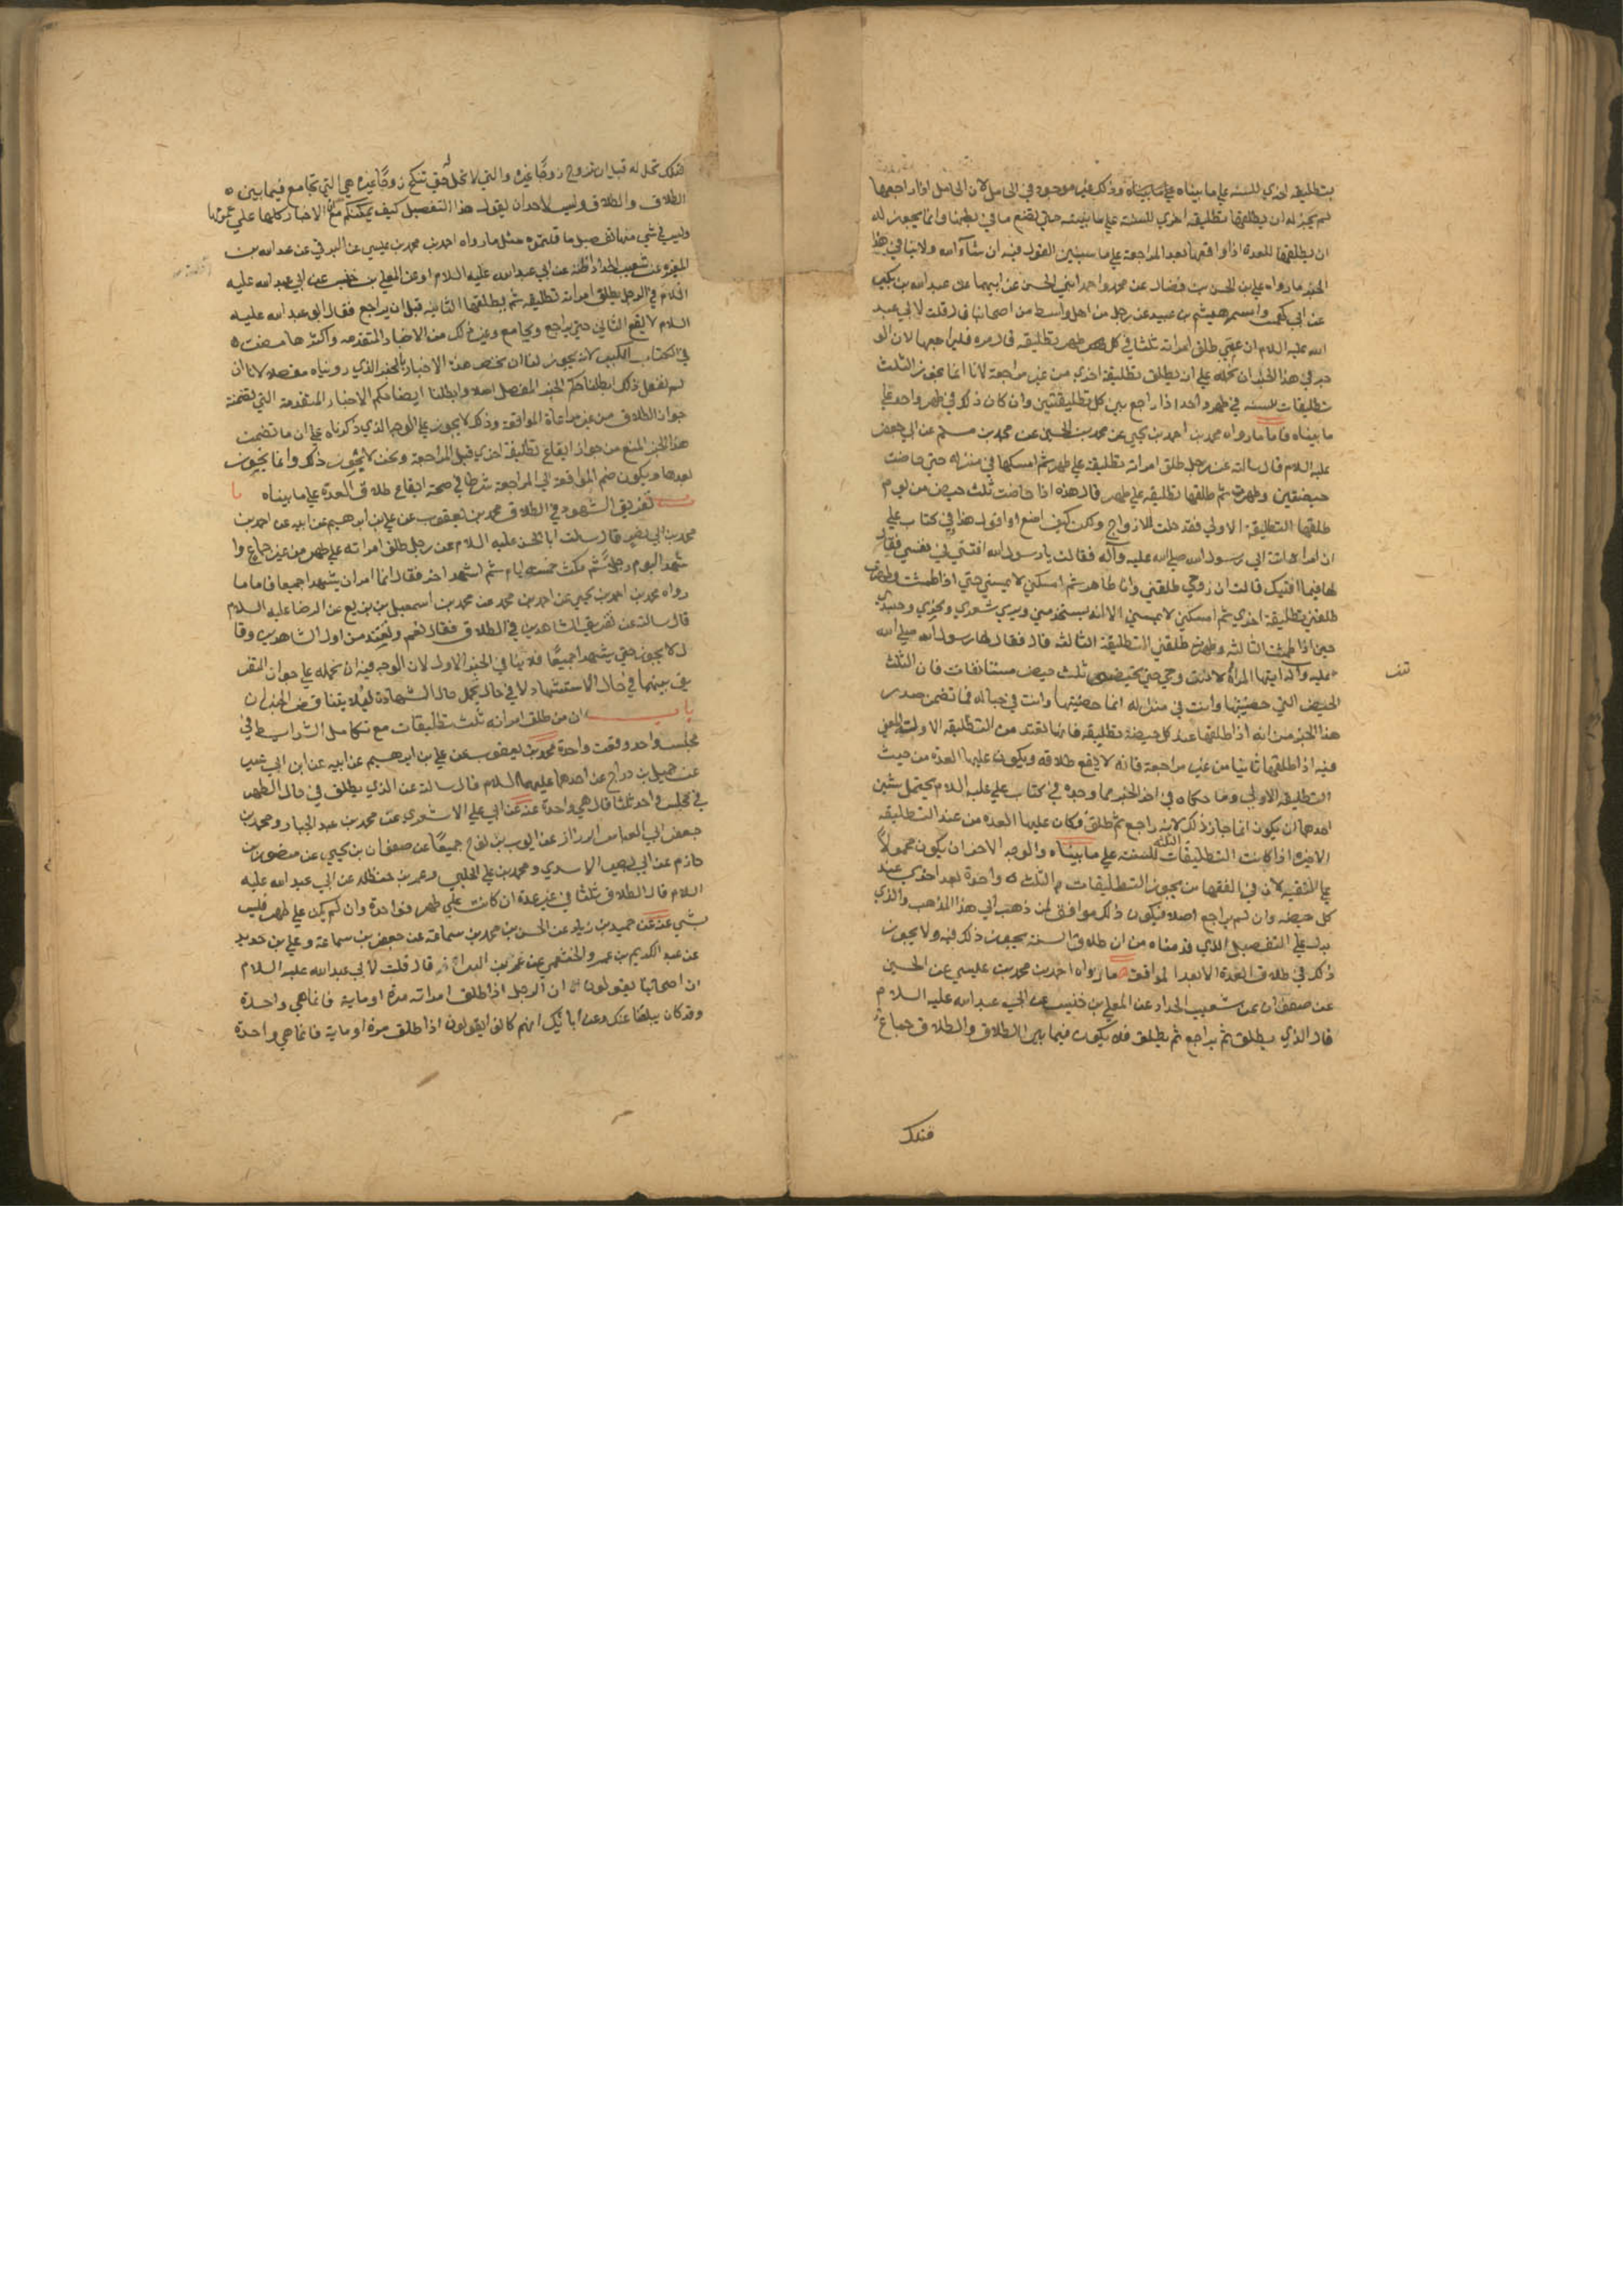 بتطليقه اخري للسنه علي ما بيناه وذلك غير موجود في الحامل لان الحامل اذا راجعها
لم يجز له ان يطلقها تطليقه اخري للسنة علي ما بينته حتي تضع ما في بطنها وانما يجوز له
ان يطلقها للعدة اذا واقعها بعد المراجعة علي ما سنبين القول فيه ان شاء الله ولا ينافي هذا
الخبر ما رواه علي بن الحسن بن فضال عن محمد واحمد ابني الحسن عن ابيهما عن عبد الله بن بكير
عن ابي كهمس واسمه هيثم بن عبيد عن رجل من اهل واسط من اصحابنا قال قلت لابي عبد
الله عليه السلام ان عمي طلق امراته ثلثا في كل طهر تطليقه قال مره فليراجعها لان الو
جه في هذا الخبر ان نحمله علي ان يطلق تطليقة اخري من غير مراجعة لانا انما نجوز الثلث
تطليقات للسنه في طهر واحد اذا راجع بين كل تطليقتين وان كان ذلك في طهر واحد علي
ما بيناه فاما ما رواه محمد بن احمد بن يحيي عن محمد بن الحسين عن محمد بن مسلم عن ابي جعفر
عليه السلام قال سالته عن رجل طلق امراته تطليقه علي طهر ثم امسكها في منزله حتي حاضت
حيضتين وطهرت ثم طلقها تطليقه علي طهر قال هذه اذا حاضت ثلث حيض من يوم
طلقها التطليقة الاولي فقد حلت للازواج ولكن كيف اصنع او اقول هذا وفي كتاب علي
ان امراه اتت الي رسول الله صلي الله عليه وآله فقالت يا رسول الله افتني في نفسي فقال
لها فيما افتيك قالت ان زوجي طلقني وانا طاهر ثم امسكني لا يمسني حتي اذا طمثت وطهرت
طلقني تطليقة اخري ثم امسكني لا يمسني الا انه يستخدمني ويري شعري ونحري وجسدي
حتي اذا طمثت الثالثه وطهرت طلقني التطليقة الثالثه قال فقال لها رسول الله صلي الله
عليه وآله ايتها المراة لا تتزوجي حتي تحيضي ثلث حيض مستانفات فان الثلث
الحيض التي حضتيها وانت في منزله انما حضتيها وانت في حباله فما تضمن صدر
هذا الخبر من انه اذا طلقها عند كل حيضة تطليقه فانها تعتد من التطليقه الاولة المعني
فيه اذا طلقها ثانيا من غير مراجعة فانه لا يقع طلاقه ويكون عليها العدة من حيث
التطليقه الاولي وما حكاه في اخر الخبر مما وجده في كتاب علي عليه السلام يحتمل شيئين
احدهما ان يكون انما جاز ذلك لانه راجع ثم طلق فكان عليها العده من عند التطليقه
الاخيره اذا كانت التطليقات الثلثه للسنه علي ما بيناه والوجه الاخر ان يكون محمولا
علي التقيه لان في الفقها من يجوز التطليقات الثلث واحدة بعد اخري عند
كل حيضه وان لم يراجع اصلا فيكون ذلك موافق لمن ذهب الي هذا المذهب والذي
يدل علي التفصيل الذي قدمناه من ان طلاق السنة يجوز ذلك فيه ولا يجوز
ذلك في طلاق العدة الا بعد المواقعة ما رواه احمد بن محمد بن عيسي عن الحسين
عن صفوان عن شعيب الحداد عن المعلي بن خنيس عن ابي عبد الله عليه السلام
قال الذي يطلق ثم يراجع ثم يطلق فلا يكون فيما بين الطلاق والطلاق جماع
فتلك
فتلك تحل له قبل ان تزوج زوجا غيره والتي لا تحل له حتي تنكح زوجا غيره هي التي تجامع فيما بين
الطلاق والطلاق وليس لاحد ان يقول هذا التفصيل كيف يمكنكم مع ان الاخبار كلها علي عمومها
وليس في شي منها تفصيل ما قلتموه مثل ما رواه احمد بن محمد بن عيسي عن البرقي عن عبد الله بن
المغيره عن شعيب الحداد اظنه عن ابي عبد الله عليه السلام او عن المعلي بن خنيس عن ابي عبد الله عليه
السلام في الرجل يطلق امراته تطليقه ثم يطلقها الثانيه قبل ان يراجع فقال ابو عبد الله عليه
السلام لا يقع الثاني حتي يراجع ويجامع وغير ذلك من الاخبار المتقدمه واكثرها مضت
في الكتاب الكبير لانه يجوز لنا ان نخص هذه الاخبار بالخبر الذي رويناه مفصلا لانا ان
لم نفعل ذلك ابطلنا حكم الخبر المفصل اصلا وابطلنا ايضا حكم الاخبار المتقدمة التي تضمنت
جواز الطلاق من غير مراعاة المواقعة وذلك لا يجوز علي الوجه الذي ذكرناه علي ان ما تضمنت
هذا الخبر المنع من جواز ايقاع تطليقة اخري قبل المراجعة ونحن لا نجوز ذلك وانما نجوز
بعدها ويكون ضم المواقعة الي المراجعة شرطا في صحة ايقاع طلاق العدة علي ما بيناه با
ب تفريق الشهود في الطلاق محمد بن يعقوب عن علي بن ابرهيم عن ابيه عن احمد بن
محمد بن ابي نصر قال سالت ابا الحسن عليه السلام عن رجل طلق امراته علي طهر من غير جماع وا
شهد اليوم رجلا ثم مكث خمسه ايام ثم اشهد اخر فقال انما امر ان يشهدا جميعا فاما ما
رواه محمد بن احمد بن يحيي عن احمد بن محمد عن محمد بن اسمعيل بن بزيع عن الرضا عليه السلام
قال سالته عن تفريق الشاهدين في الطلاق فقال نعم وتعتد من اول الشاهدين وقا
ل لا يجوز حتي يشهدا جميعا فلا ينافي الخبر الاول لان الوجه فيه ان نحمله علي جواز التفر
يق بينهما في حال الاستشهاد لا في حال تحمل حال الشهادة ليلا يتناقض الخبران
باب ان من طلق امراته ثلث تطليقات مع تكامل الشرايط في
مجلس واحد وقعت واحدة محمد بن يعقوب عن علي بن ابرهيم عن ابيه عن ابن ابي عمير
عن جميل بن دراج عن احدهما عليهما السلام قال سالته عن الذي يطلق في حال الطهر
في مجلس واحد ثلثا قال هي واحدة عنه عن ابي علي الاشعري عن محمد بن عبد الجبار ومحمد بن
جعفر ابي العباس الرزاز عن ايوب بن نوح جميعا عن صفوان بن يحيي عن منصور بن
حازم عن ابي بصير الاسدي ومحمد بن علي الحلبي وعمر بن حنظله عن ابي عبد الله عليه
السلام قال الطلاق ثلثا في غير عدة ان كانت علي طهر فواحدة وان لم يكن علي طهر فليس
بشي عنه عن حميد بن زياد عن الحسن بن محمد بن سماعة عن جعفر بن سماعة وعلي بن خديد
عن عبد الكريم بن عمرو الخثعمي عن عمر بن البراء قال قلت لابي عبد الله عليه السلام
ان اصحابنا يقولون ان الرجل اذا طلق امراته مرة او ماية فانما هي واحدة
وقد كان يبلغنا عنك وعن ابائك انهم كانوا يقولون اذا طلق مرة او ماية فانما هي واحدة